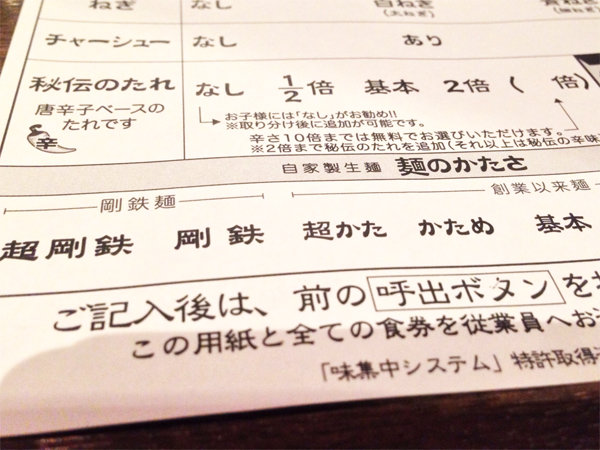 ねぎ なし 白ねぎ 青ねぎ
(太ねぎ) (細ねぎ)
チャーシュー なし あり
秘伝のたれ なし 1/2倍 基本 2倍 ( 倍)
唐辛子ベースの
たれです
辛
お子様には「なし」がお勧め!!
※取り分け後に追加が可能です。
辛さ10倍までは無料でお選びいただけます。
※2倍まで秘伝のたれを追加(それ以上は秘伝の辛味
自家製生麺 麺のかたさ
剛鉄麺 創業以来麺
超剛鉄 剛鉄 超かた かため 基本
ご記入後は、前の呼出ボタンを
この用紙と全ての食券を従業員へお
「味集中システム」特許取得